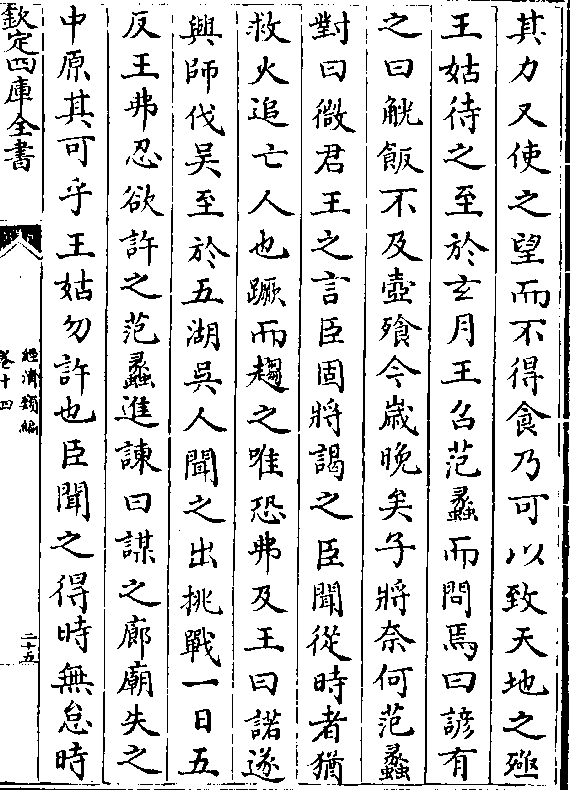 其力又使之望而不得食乃可以致天地之殛
王姑待之至於玄月王召范蠡而問焉曰諺有
之曰觥飯不及壺飱今歲晚矣子將奈何范蠡
對曰微君王之言臣固將謁之臣聞從時者猶
救火追亡人也蹶而趨之唯恐弗及王曰諾遂
興師伐吳至於五湖吳人聞之出挑戰一日五
反王弗忍欲許之范蠡進諫曰謀之廊廟失之
中原其可乎王姑勿許也臣聞之得時無怠時
欽定四庫全書
經濟類編
卷十四
二十五